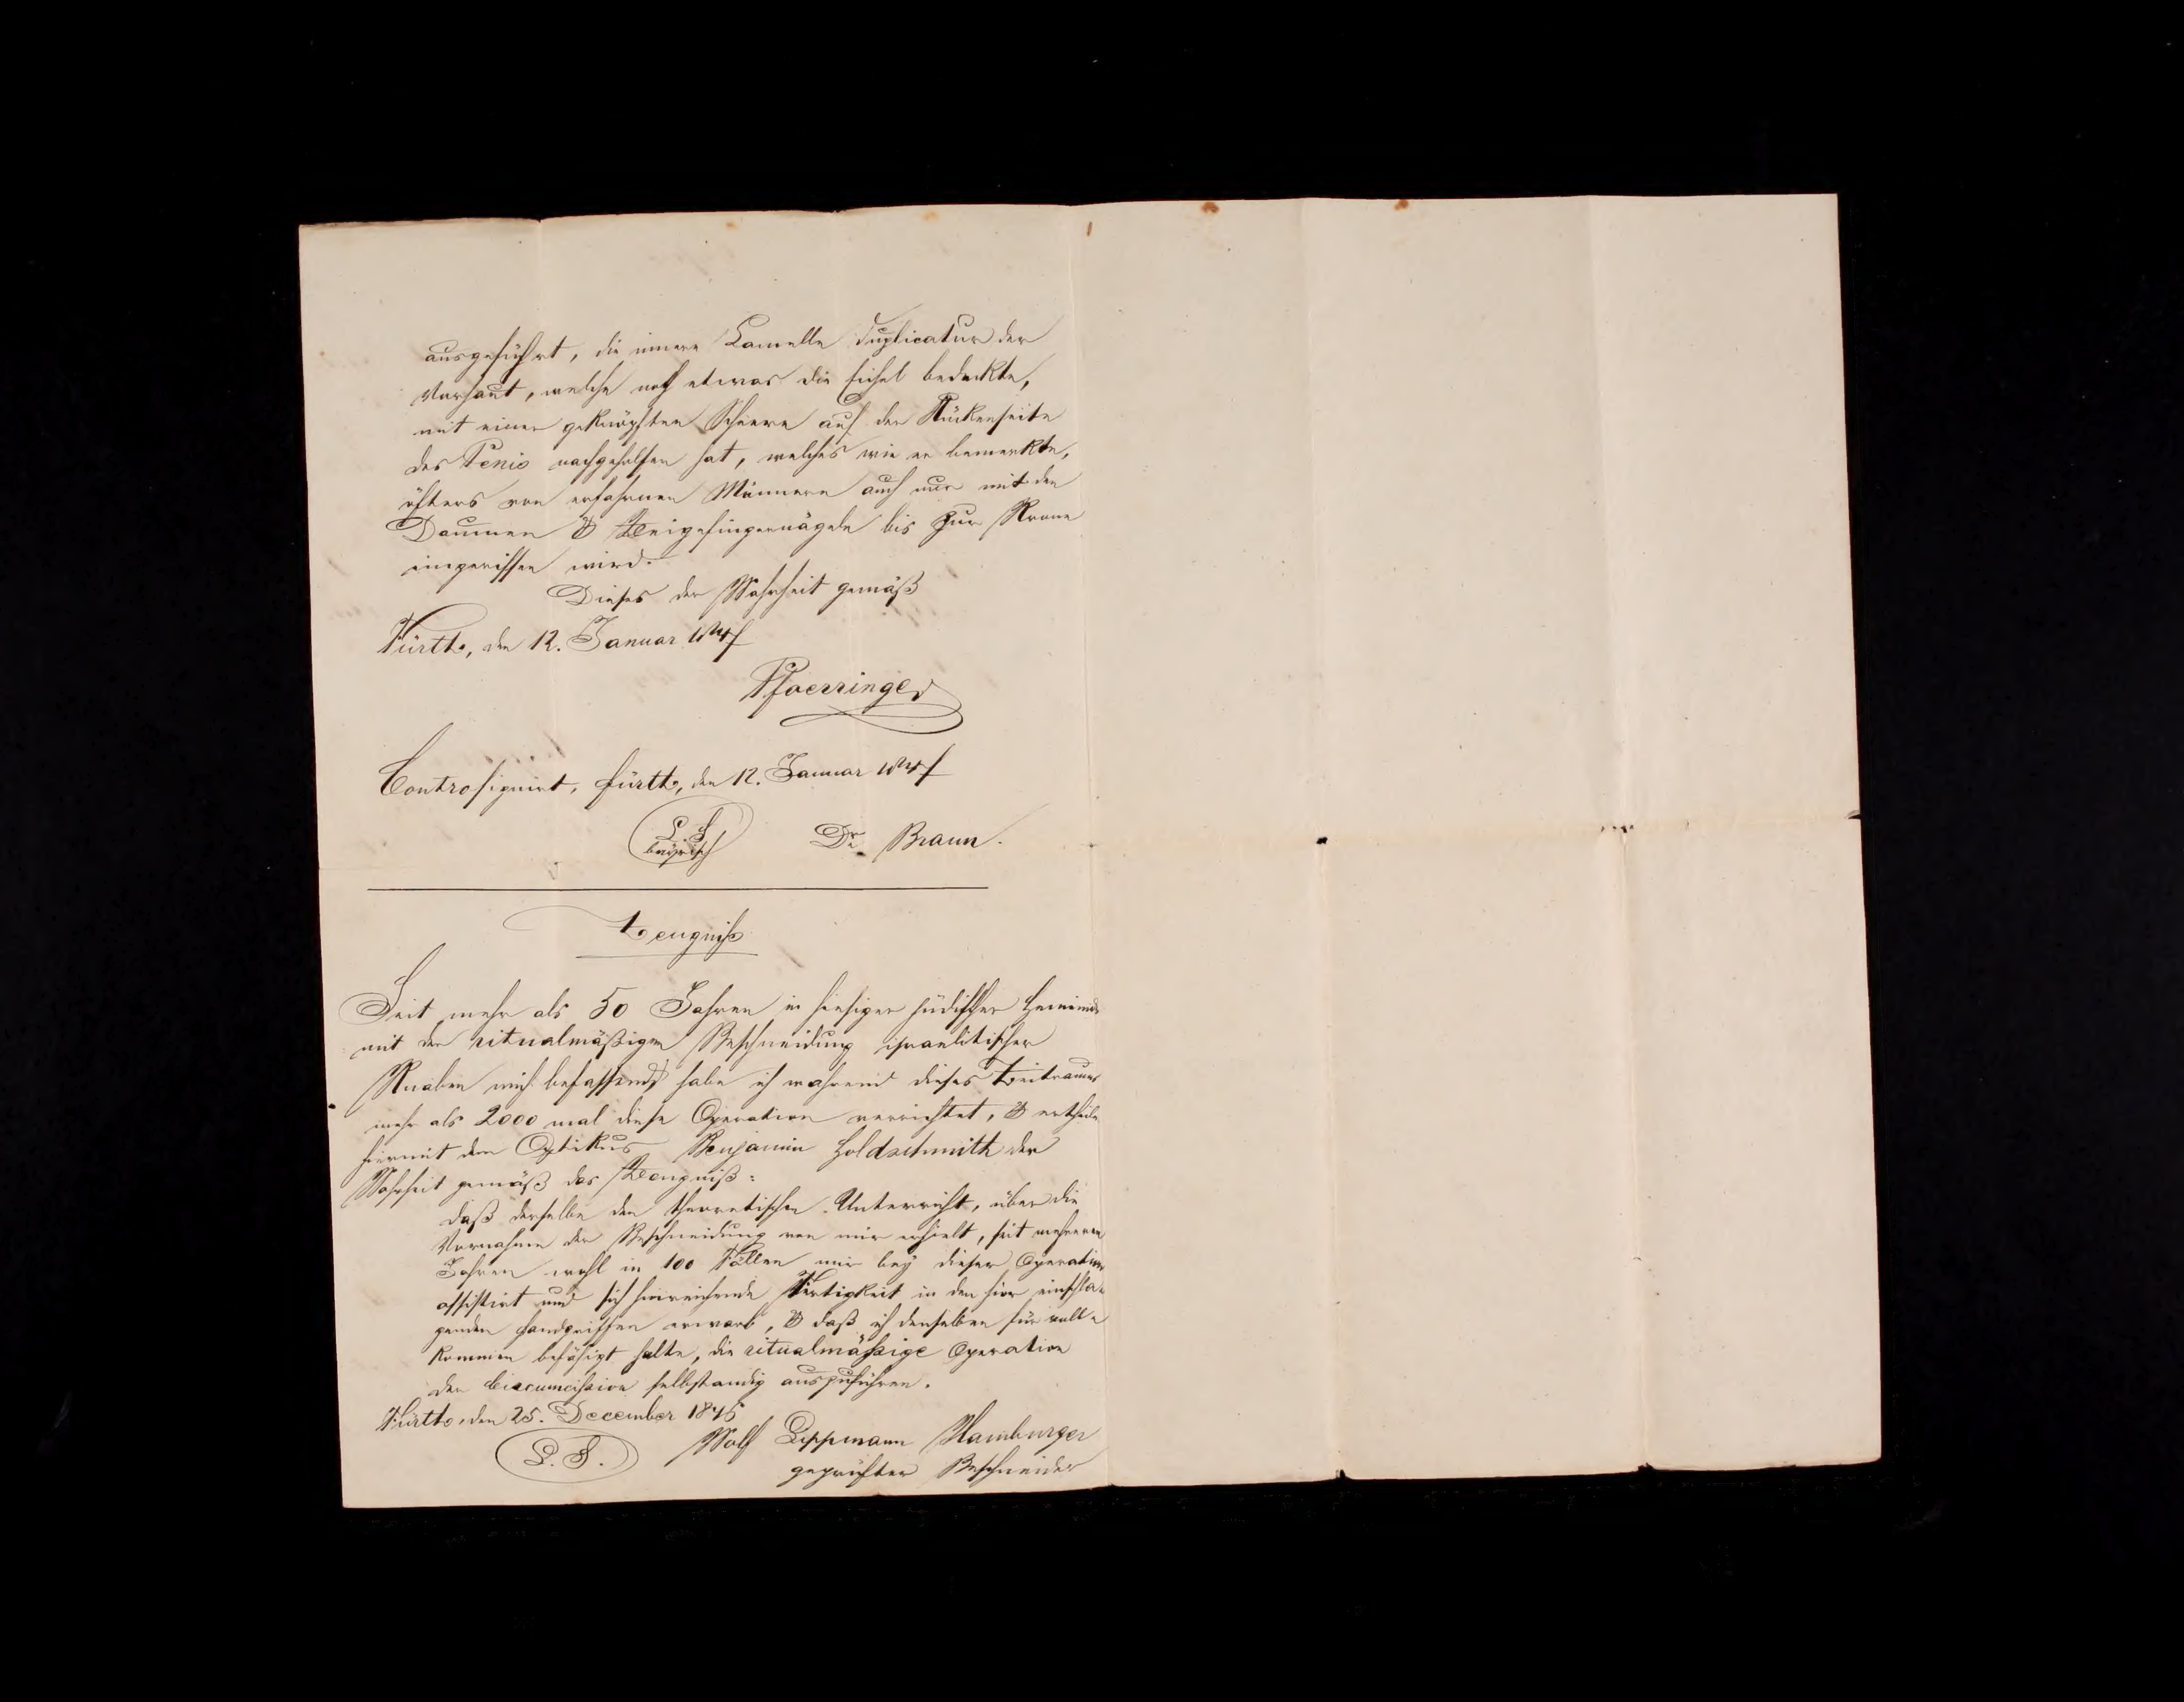 ausgeführt, die innere Lamelle Duplicatur der
Vorhaut, welche noch etwas die Eichel bedeckte,
mit einer geknöpften Scheere auf der Rückenseite
des Penis nachgeholfen hat, welches wie er bemerkte,
öfters von erfahrnen Männern auch nur mit den
Daumen & Zeigefingernägeln bis zur Krone
eingerissen wird.
Dieses der Wahrheit gemäß
Fürth, den 12. Januar
Pfoerringer
Contrasignirt, Fürth, den 12. Januar
L. S. Dr. Braun.
bayrisch
Zeugniß
Seit mehr als 50 Jahren in hiesiger jüdischer Gemeinde
mit der ritualmäßigen Beschneidung israelitischer
Knaben mich befassend, habe ich während dieses Zeitraumes
mehr als 2000 mal diese Operation verrichtet, & ertheile
hiermit dem Optikus Benjamin Goldschmith der
Wahrheit gemäß das Zeugniß:
daß derselbe den theoretischen Unterricht, über die
Vornahme der Beschneidung von mir erhielt, seit mehreren
Jahren wohl in 100 Fällen mir bey dieser Operation
assistirt und sich hinreichende Fertigkeit in den hier einschla-
genden Handgriffen erwarb, & daß ich denselben für voll-
kommen befähigt halte, die ritualmässige Operation
der Circumcission selbstandig auszuführen.
Fürth, den 25. December
L. S. Wolf Lippmann Hamburger
geprüfter Beschneider